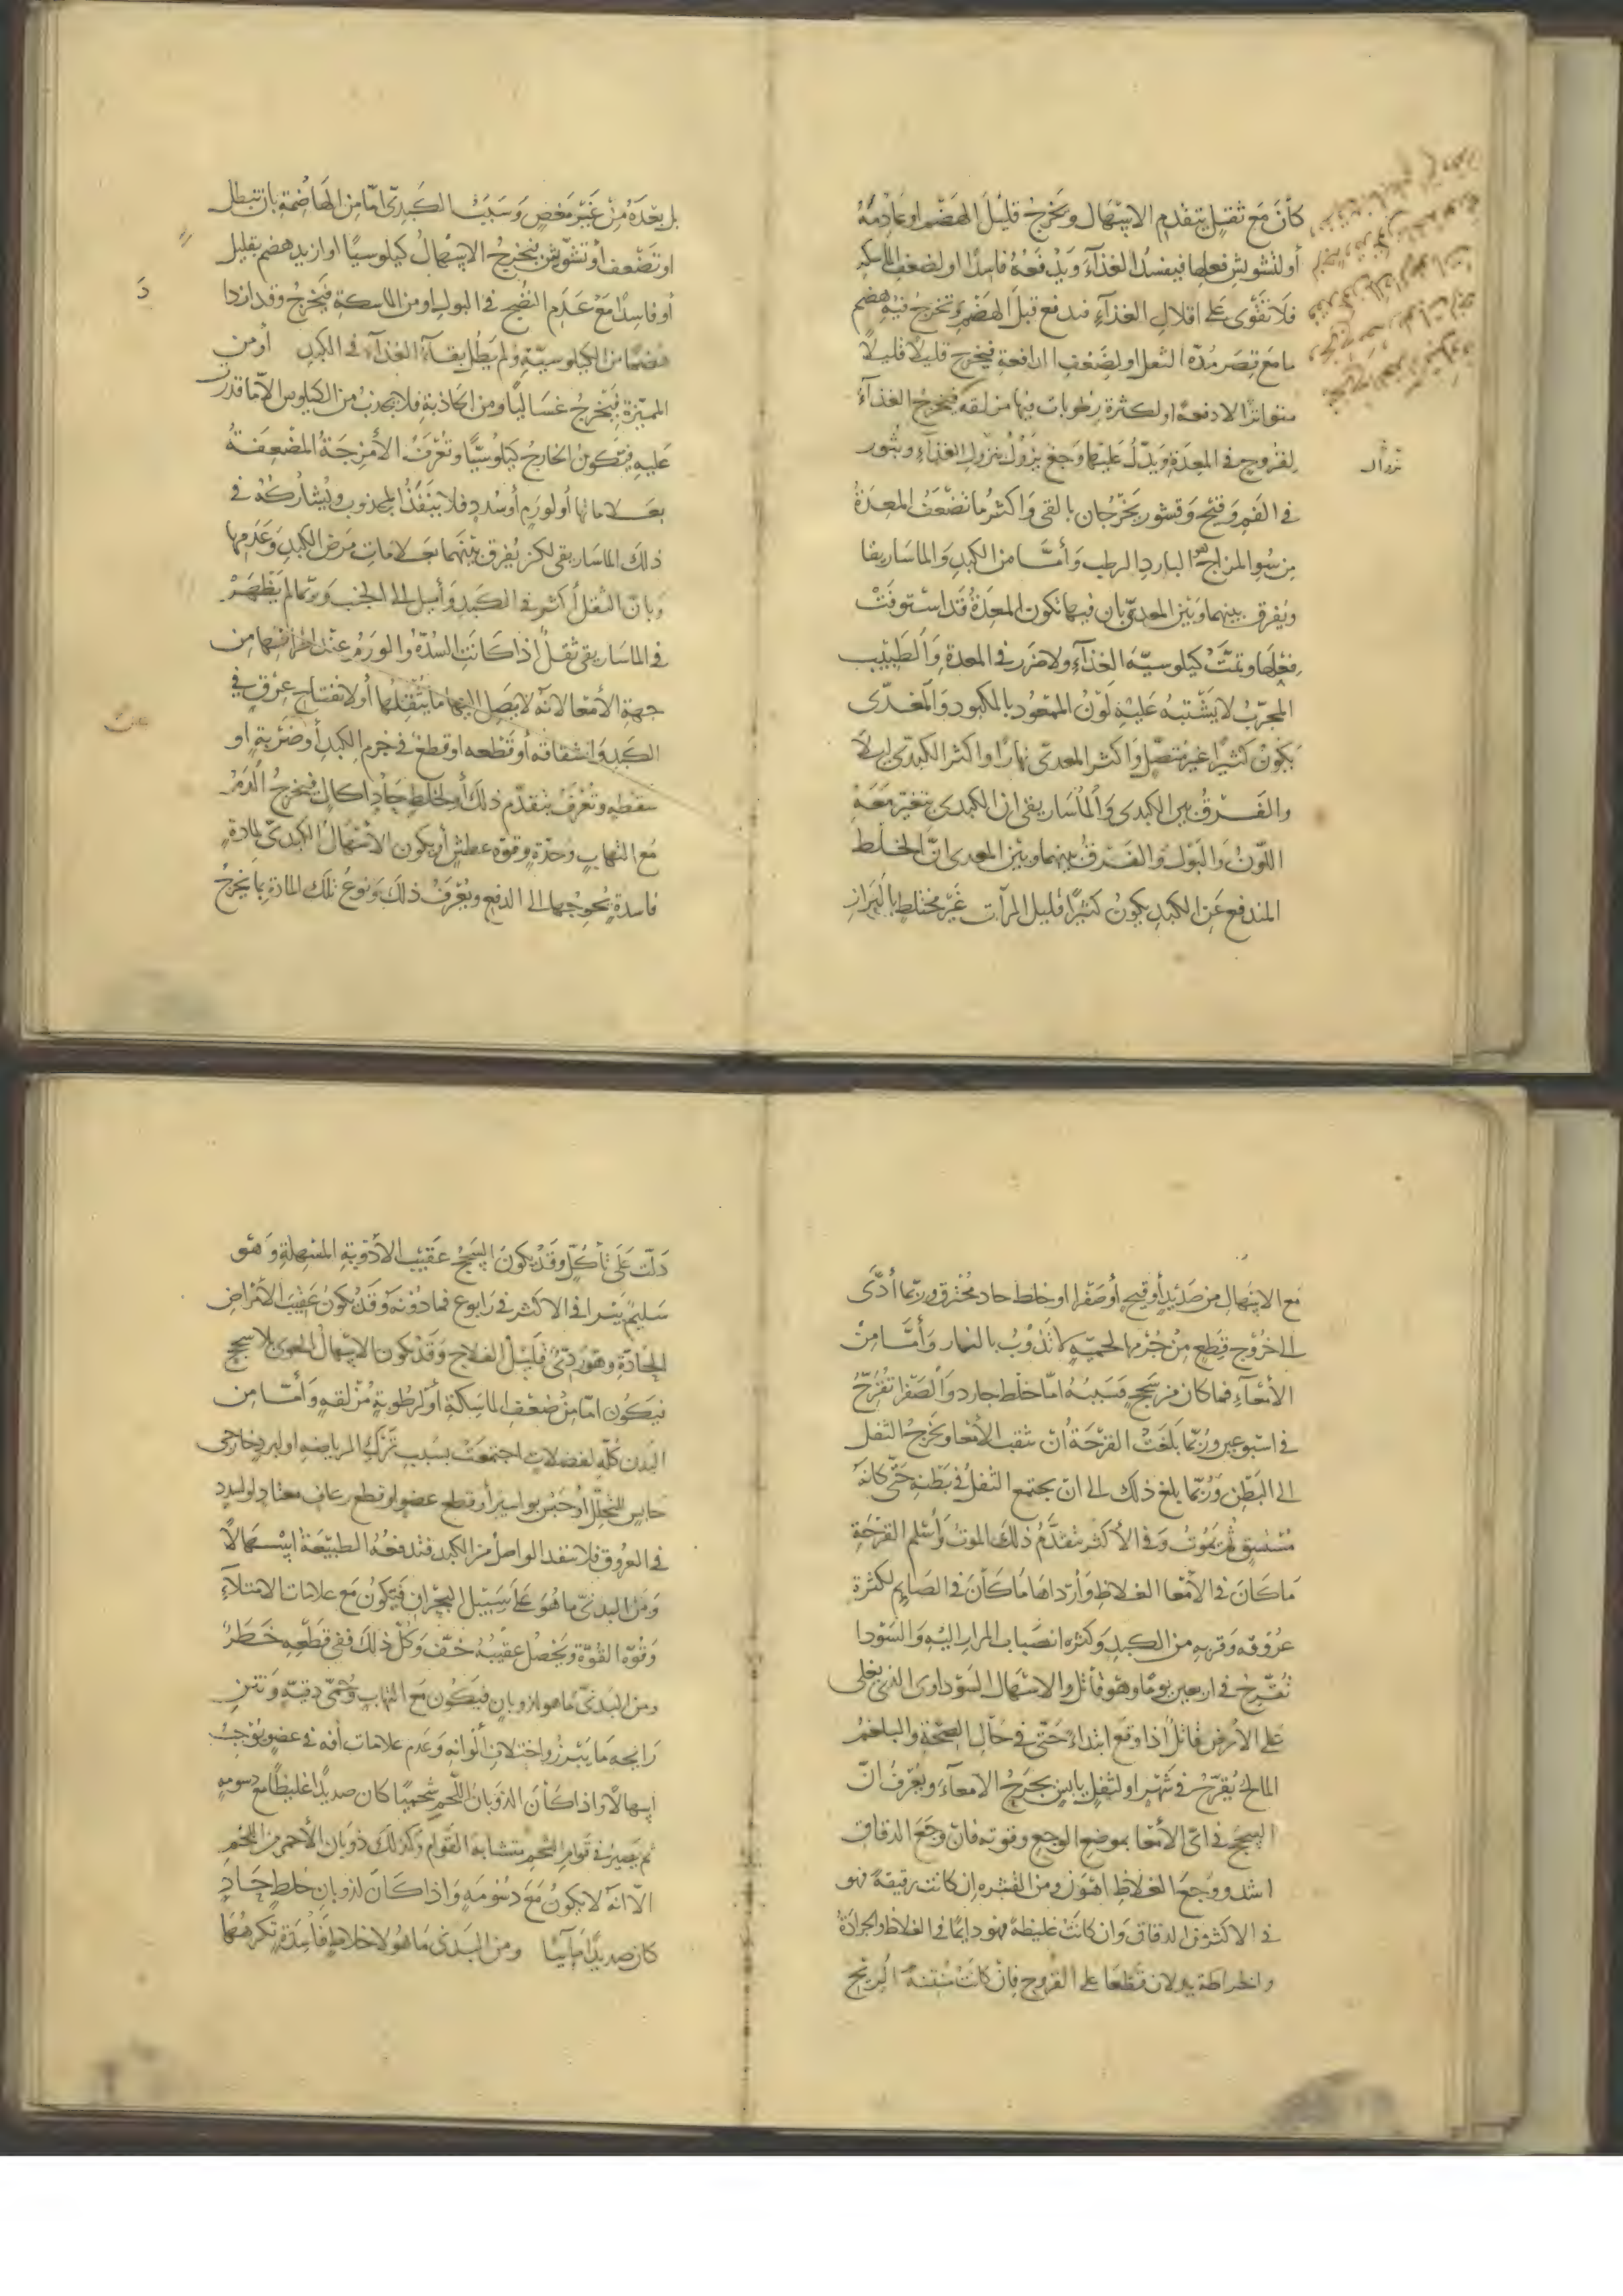 كأنَ مَع ثقيلٍ يتقدم الاسهال ويخرج قليلَ الهضم او عادمهُ
أو لتشويش فعلها فيفسد الغذآء ويدفعهُ فاسدًا او لضعف الماسكه
فلا تقوى على اقلال الغذآء فندفع قبل الهضم ويخرج فيه هضم
ما مع قصر مدّة الثفل او لضعف الدافعة فيخرج قليلاً قليلاً
متواترًا لا دفعة او لكثرة رطوبات فيها مزلقه فيخرج الغذآء
لقروح في المعدة ويدلّ عليها وجع يزول بنزول الغذاء وبثور
نزوال
في الفم وقيح وقشور يخرجان بالقي واكثر ما تضعف المعدة
من سوء المزاج هو البارد الرطب وأمّا من الكبد والماساريقا
ويفرق بينهما وبين المعدي بان فيهما تكون المعدة قد استوفت
فعلها وتمت كيلوسيّة الغذآء ولا ضرر في المعدة والطبيب
المجرّب لا يشتبه عليه لون الممعود بالمكبود والمعدّى
يكون كثيرًا غير متصل واكثر المعدي نهارًا واكثر الكبدي ليلاً
والفرق بين الكبدي والماساريقى ان الكبدي يتغير معه
اللون والبول والفرق بينهما وبين المعدى انّ الخلط
المندفع عن الكبد يكون كثيرًا قليل المرآت غير مختلط بالبراز
بل بعده من غير مغص وسبب الكبديّ امّا من الهاضمة بان تبطل
او تضعف أو تشوش فيخرج الاسهال كيلوسيًا او ازيد هضم بقليل
أو فاسدًا مع عدم النضج في البول او من الماسكة فيخرج وقد ازدا
هضمًا من الكيلوسيّة ولم يطل بقآء الغذآء في الكبد أو من
المميزة فيخرج غساليًا او من الجاذبة فلا يجذب من الكيلوس الاّ ما قدر
عليه فيكون الخارج كيلوسيًّا وتعرف الأمزجة المضعفة
بعلاماتها أو لورم أو سدد فلا ينفذ المجذوب ويشاركه في
ذلك الماساريقى لكن يفرق بينهما بعلامات مرض الكبد وعدمها
وبانّ الثقل أكثر في الكبد وأميل الى الجنب وربّما لم يظهر
في الماساريقى ثقل اذا كانت السدّة والورم عند اطرافها من
جهة الأمعا لانّه لا يصل اليها ما يثقلها أو لانفتاح عرق في
الكبد وانشقاقه أو قطعه او قطع في جرم الكبد أو ضربة او
سقطه وتعرف بتقدّم ذلك أو لخلط حادّ اكال فيخرج الدم
مع التهاب وحدّة وقوّة عطش أو يكون الاسهال الكبديّ لمادة
فاسدة يحوجها الى الدفع ويعرف ذلك ونوع تلك المادة بما يخرج
مع الاسهال من صديد أو قيح أو صفرا او خلط حاد محترق وربّما أدّى
الى خروج قطع من جرمها لحميّة لا تذوب بالنار وأمّا من
الأمعآء فما كان من سحج فسببه امّا خلط حار دوالصفرا تقرّح
في اسبوعين وربّما بلغت القرحة أن تثقب الأمعا ويخرج الثفل
الى البطن وربّما يلغ ذلك الى ان يجتمع الثفل في بطنه حتّى كانه
مستسق ثم يموت وفي الأكثر يتقدّم ذلك الموت وأسلم القرحة
ما كان في الأمعا الغلاظ وأرداها ما كأن في الصايم لكثرة
عروقه وقربه من الكبد وكثره انصباب المرار اليه والسودا
تقرّح في اربعين يومًا وهو قاتل والاسهال السوداوى الذي يغلى
على الأرض قاتل اذا وقع ابتداءً حتّى في حال الصحّة والبلغم
المالح يقرّح في شهر او لثفل يابس يجرح الامعآء ويعرف انّ
السحج في ايّ الأمعا بموضع الوجع وقوته فان وجع الدقاق
اشد ووجع الغلاظ اهون ومن القشره ان كانت رقيقة فهو
في الاكثر من الدقاق وان كانت غليظة فهو دايمًا في الغلاظ والجرادة
والخراطة يدلان قطعًا على القروح فان كانت منتنة الريح
دلّت على تأكّل وقد يكون السحج عقيب الأدوية المسهلة وهو
سليم يبرا في الاكثر في رابوع فما دونه وقد يكون عقيب الأمراض
الحادّة وهو ردئ قليل الفلاح وقد يكون الاسهال المعوي بلا سحج
فيكون امّا من ضعف الماسكة أو لرطوبة مزلقه وأمّا من
البدن كلّه لفضلات اجتمعت بسبب ترك الرياضه او لبرد خارجي
حابس للتحلّل او حبس بواسير أو قطع عضو او قطع رعاف معتاد او لسدد
في العروق فلا ينفد الواصل من الكبد فتدفعه الطبيعة اسهالاً
ومن البدنيّ ما هو على سبيل البحران فيكون مع علامات الامتلآء
وقوّة القوّة ويحصل عقيبه خفّ وكلّ ذلك ففي قطعه خطر
ومن البدنيّ ما هو لذوبان فيكون مع التهاب وحمّى دقيّة ونتن
رايحه ما يبرز واختلاف ألوانه وعدم علامات أفه في عضو يوجب
إسهالاً واذا كأن الذوبان اللحم شحميًا كان صديدًا غليظًا مع دسومه
ثم يصير في قوام الشحم متشابه القوام وكذلك ذوبان الأحمر من اللحم
الاّ انّه لا يكون مع دسومه واذا كان لذوبان خلط حادٍ
كان صديدًا مآئيًا ومن البدنى ما هو لاخلاط فاسدة تكرهها